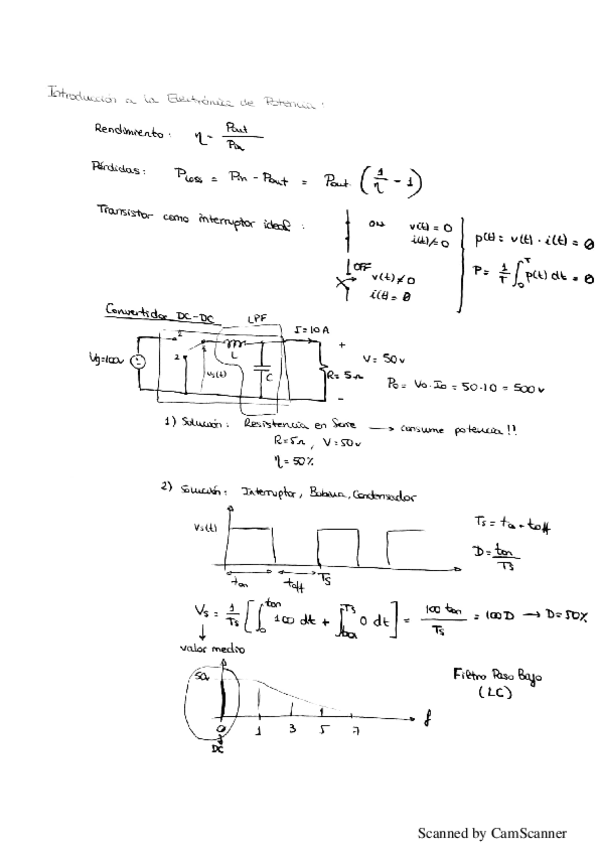 Introducción a la Electrónica de Potencia:
Rendimiento: η = Pout / Pin
Pérdidas: Ploss = Pin - Pout = Pout (1/η - 1)
Transistor como interruptor ideal:
ON v(t) = 0
i(t) ≠ 0
OFF
v(t) ≠ 0
i(t) = 0
p(t) = v(t) · i(t) = 0
P = 1/T ∫₀ᵀ p(t) dt = 0
Convertidor DC-DC
LPF
I = 10 A
Vg=100v
1
2
Vs(t)
L
C
R = 5Ω
+
-
V = 50v
Po = Vo · Io = 50 · 10 = 500 v
1) Solución: Resistencia en Serie → consume potencia!!
R=5Ω, V=50v
η = 50%
2) Solución: Interruptor, Bobina, Condensador
Vs(t)
ton
toff
Ts
Ts = ton + toff
D = ton / Ts
Vs = 1/Ts [∫₀^ton 100 dt + ∫ton^Ts 0 dt] = 100 ton / Ts = 100D → D=50%
valor medio
50v
0
1
3
5
7
f
DC
Filtro Paso Bajo
(LC)
Scanned by CamScanner